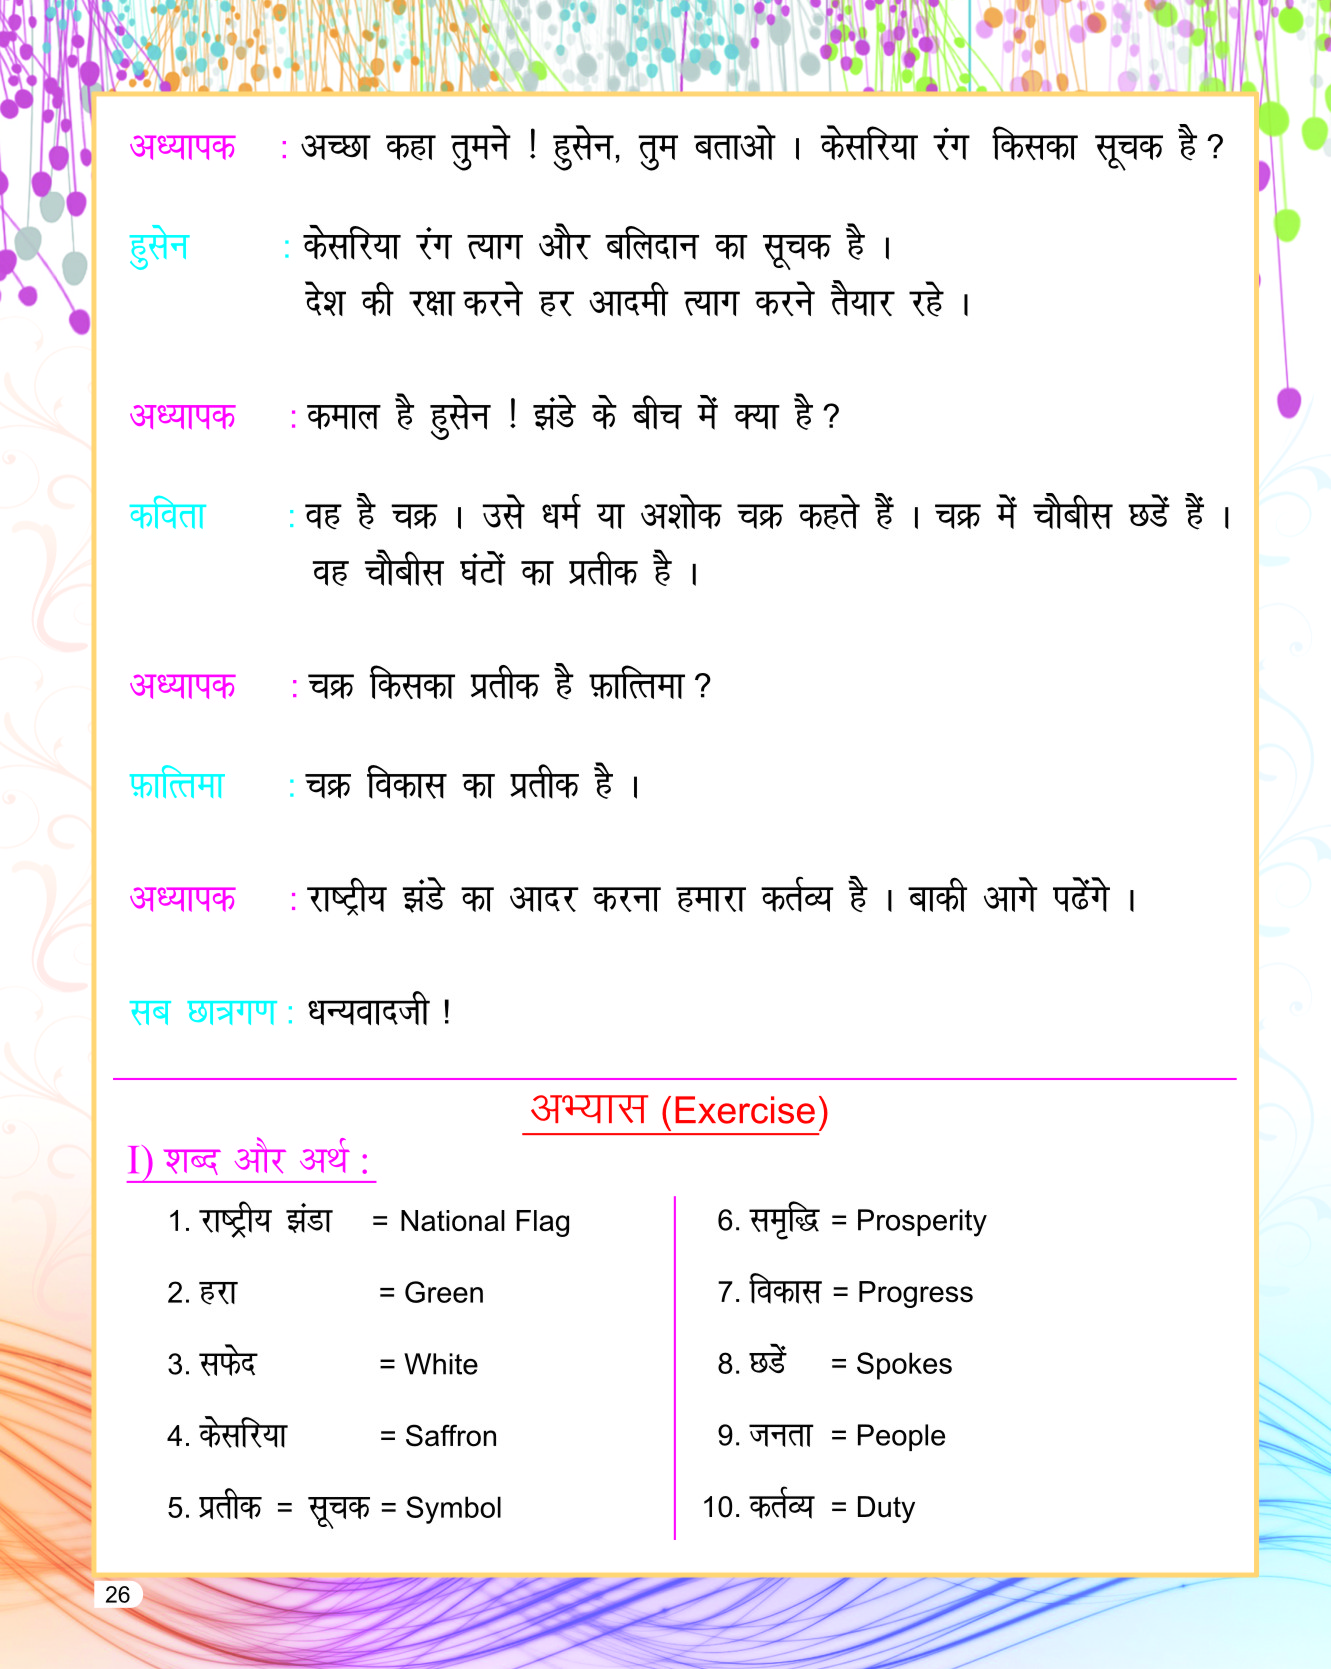 अध्यापक : अच्छा कहा तुमने ! हुसेन, तुम बताओ । केसरिया रंग किसका सूचक है ?
हुसेन : केसरिया रंग त्याग और बलिदान का सूचक है ।
देश की रक्षा करने हर आदमी त्याग करने तैयार रहे ।
अध्यापक : कमाल है हुसेन ! झंडे के बीच में क्या है ?
कविता : वह है चक्र । उसे धर्म या अशोक चक्र कहते हैं । चक्र में चौबीस छडें हैं ।
वह चौबीस घंटों का प्रतीक है ।
अध्यापक : चक्र किसका प्रतीक है फ़ात्तिमा ?
फ़ात्तिमा : चक्र विकास का प्रतीक है ।
अध्यापक : राष्ट्रीय झंडे का आदर करना हमारा कर्तव्य है । बाकी आगे पढेंगे ।
सब छात्रगण : धन्यवादजी !
अभ्यास (Exercise)
I) शब्द और अर्थ :
1. राष्ट्रीय झंडा = National Flag
2. हरा = Green
3. सफेद = White
4. केसरिया = Saffron
5. प्रतीक = सूचक = Symbol
6. समृद्धि = Prosperity
7. विकास = Progress
8. छडें = Spokes
9. जनता = People
10. कर्तव्य = Duty
26